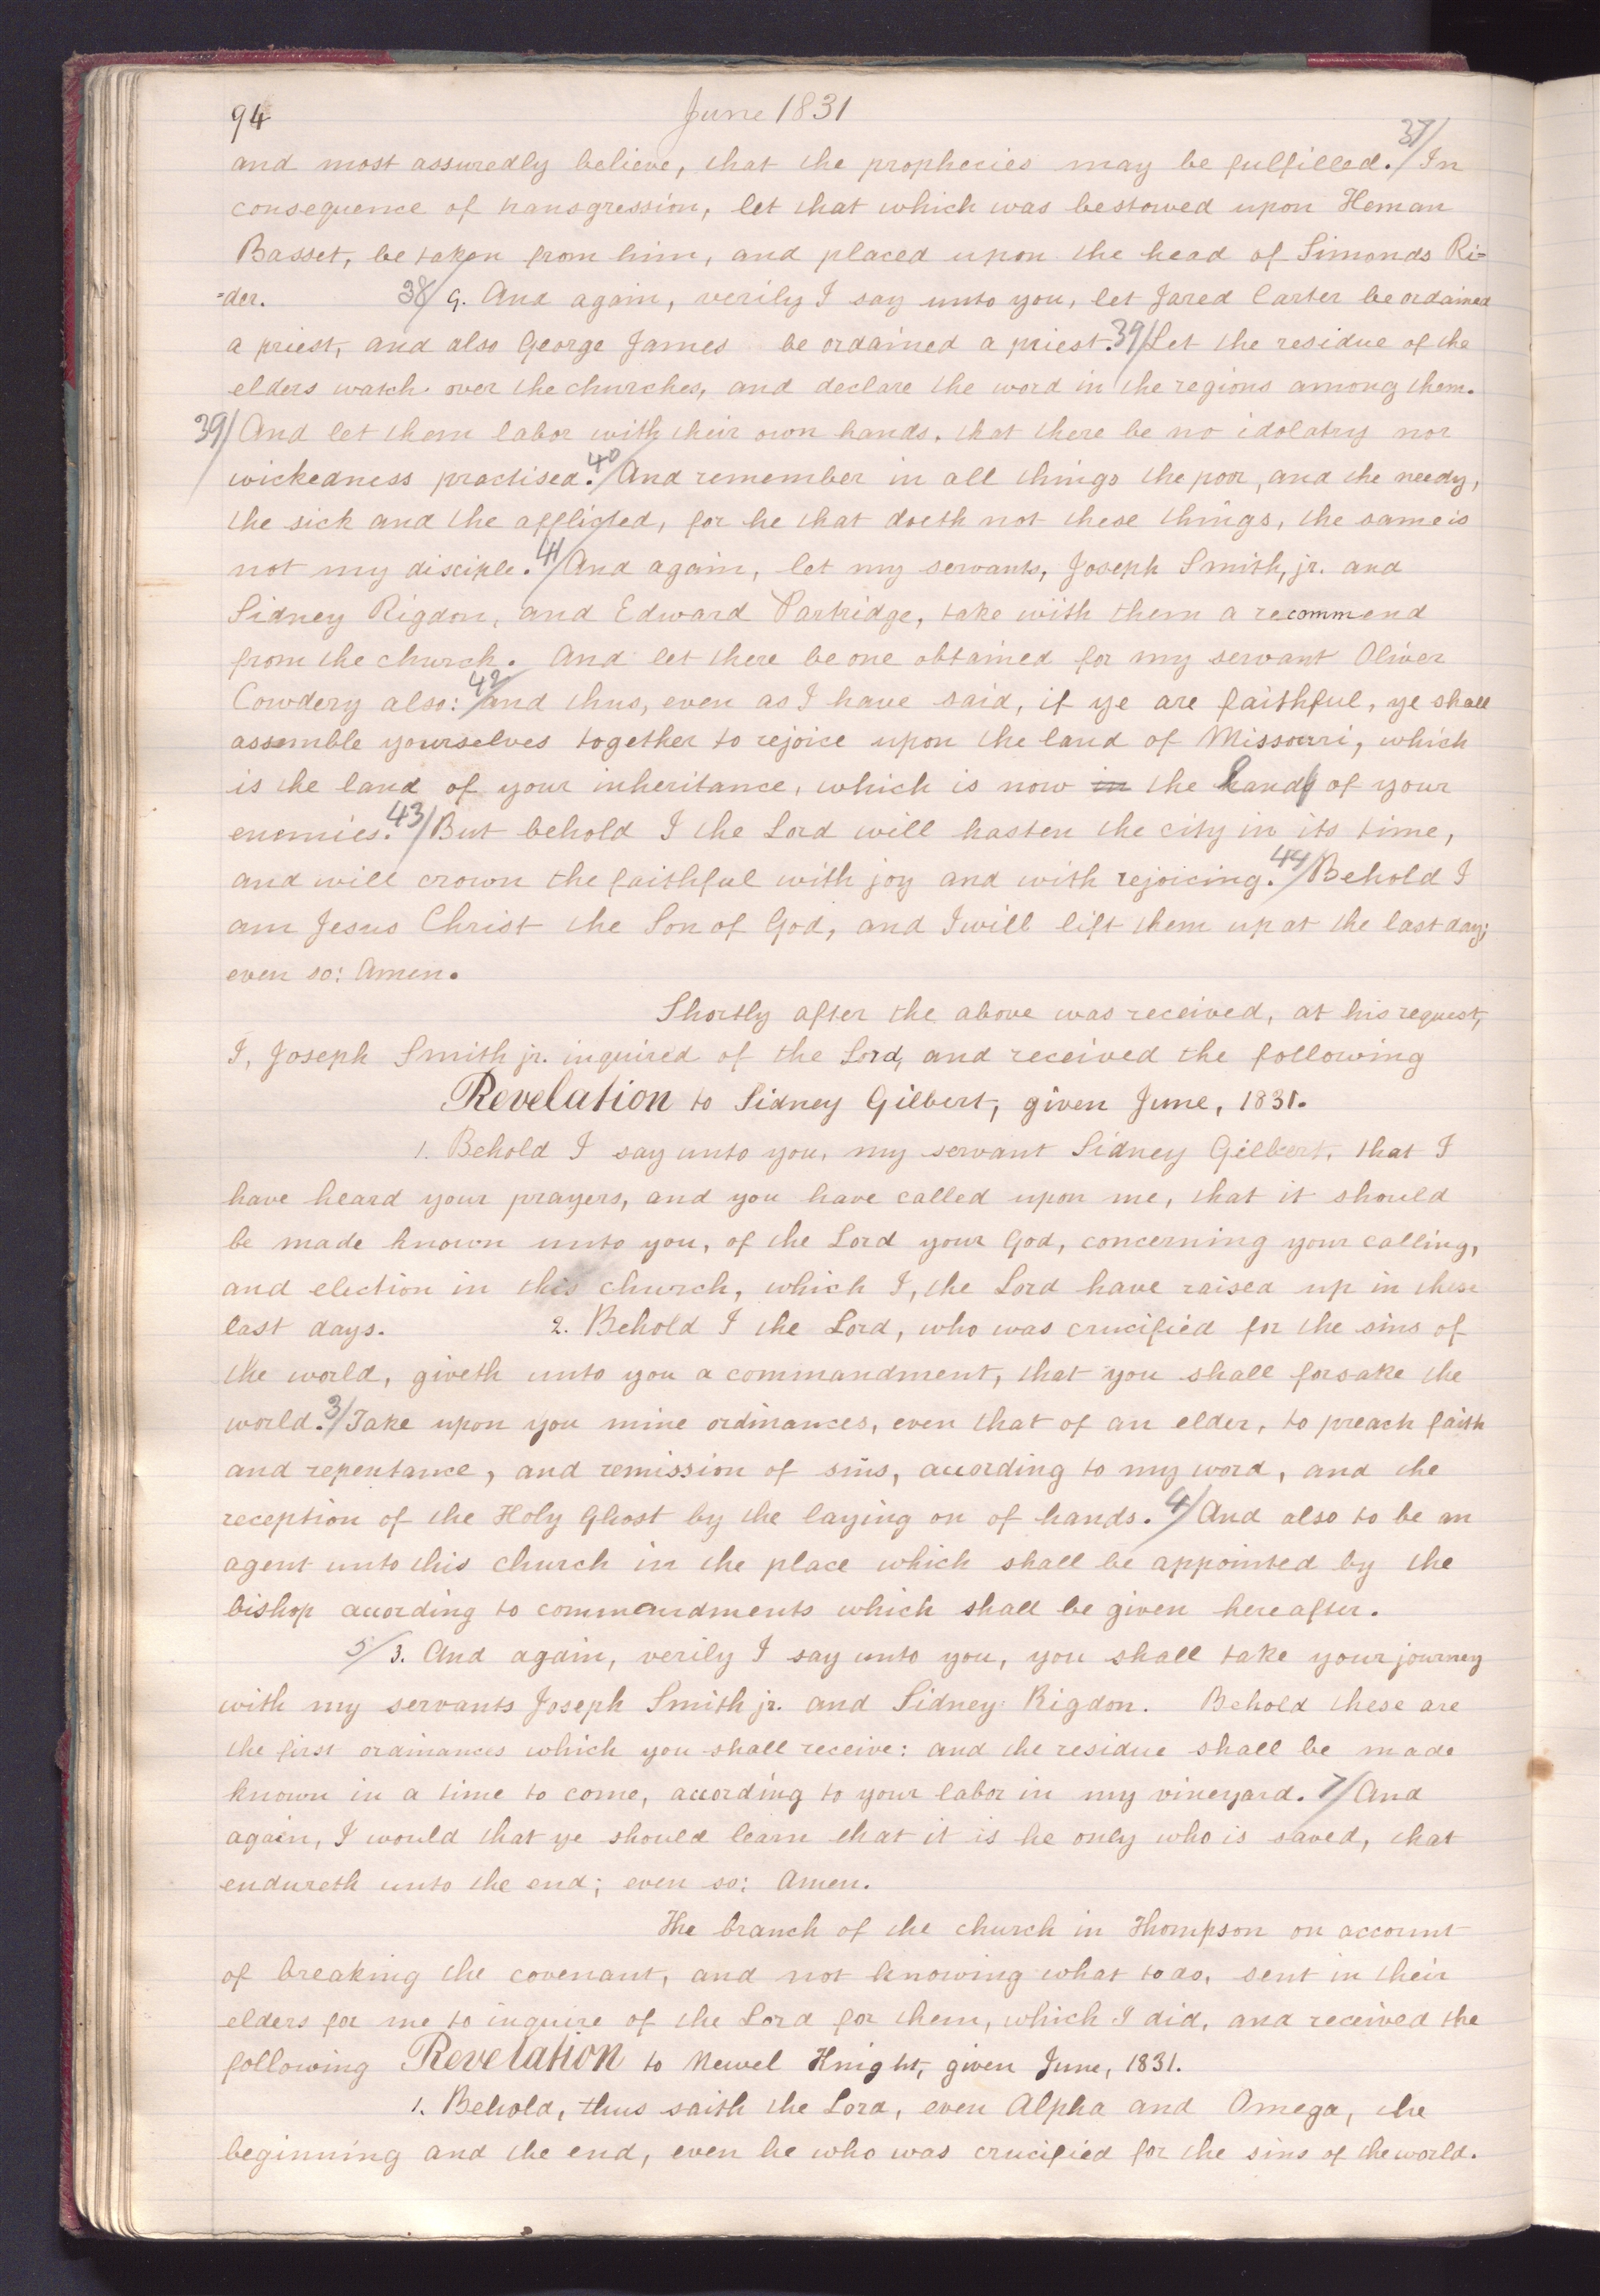 94
June 1831
and most assuredly believe, that the prophecies may be fulfilled. 37/ In
consequence of transgression, let that which was bestowed upon Heman
Basset, be taken from him, and placed upon the head of Simonds Ri=
=der. 38/ 9. And again, verily I say unto you, let Jared Carter be ordained
a priest, and also George James be ordained a priest. 39/ Let the residue of the
elders watch over the churches, and declare the word in the regions among them.
39/ And let them labor with their own hands, that there be no idolatry nor
wickedness practised. 40/ And remember in all things the poor, and the needy,
the sick and the afflicted, for he that doeth not these things, the same is
not my disciple. 41/ And again, let my servants, Joseph Smith, jr. and
Sidney Rigdon, and Edward Partridge, take with them a recommend
from the church. And let there be one obtained for my servant Oliver
Cowdery also: 42/ and thus, even as I have said, if ye are faithful, ye shall
assemble yourselves together to rejoice upon the land of Missouri, which
is the land of your inheritance, which is now in the hands of your
enemies. 43/ But behold I the Lord will hasten the city in its time,
and will crown the faithful with joy and with rejoicing. 44/ Behold I
am Jesus Christ the Son of God, and I will lift them up at the last day;
even so: Amen.
Shortly after the above was received, at his request,
I, Joseph Smith jr. inquired of the Lord, and received the following
Revelation to Sidney Gilbert, given June, 1831.
1. Behold I say unto you, my servant Sidney Gilbert, that I
have heard your prayers, and you have called upon me, that it should
be made known unto you, of the Lord your God, concerning your calling,
and election in this church, which I, the Lord have raised up in these
last days. 2. Behold I the Lord, who was crucified for the sins of
the world, giveth unto you a commandment, that you shall forsake the
world. 3/ Take upon you mine ordinances, even that of an elder, to preach faith
and repentance, and remission of sins, according to my word, and the
reception of the Holy Ghost by the laying on of hands. 4/ And also to be an
agent unto this church in the place which shall be appointed by the
bishop according to commandments which shall be given hereafter.
5/ 3. And again, verily I say unto you, you shall take your journey
with my servants Joseph Smith jr. and Sidney Rigdon. Behold these are
the first ordinances which you shall receive: and the residue shall be made
known in a time to come, according to your labor in my vineyard. 7/ And
again, I would that ye should learn that it is he only who is saved, that
endureth unto the end; even so: Amen.
The branch of the church in Thompson on account
of breaking the covenant, and not knowing what to do, sent in their
elders for me to inquire of the Lord for them, which I did, and received the
following Revelation to Newel Knight, given June, 1831.
1. Behold, thus saith the Lord, even Alpha and Omega, the
beginning and the end, even he who was crucified for the sins of the world.